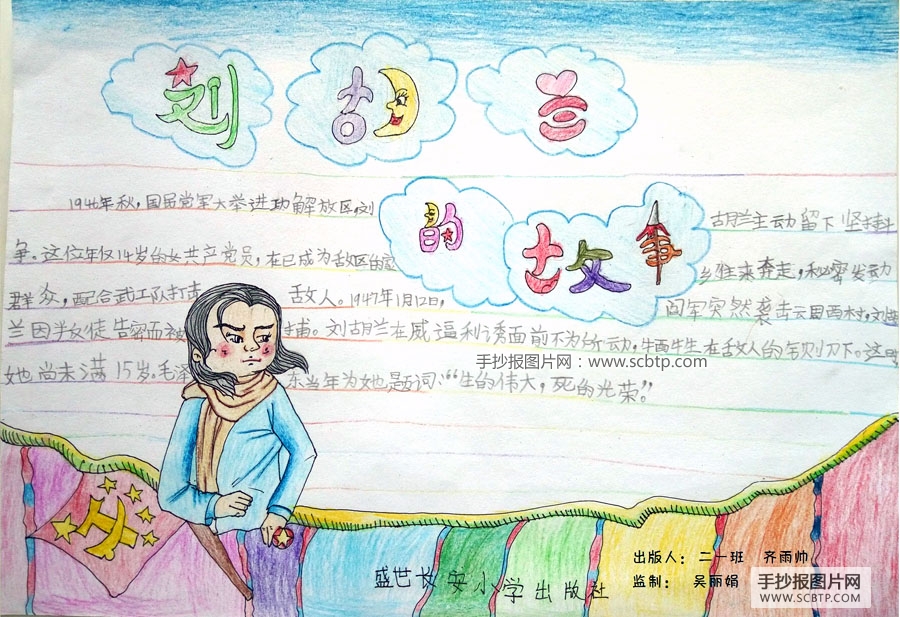 刘胡兰
的故事
1946年秋,国民党军大举进功解放区,刘胡兰主动留下坚持斗
争。这位年仅14岁的女共产党员,在已成为敌区的家乡往来奔走,秘密发动
群众,配合武工队打击敌人。1947年1月12日,阎军突然袭击云周西村,刘胡
兰因叛徒告密而被捕。刘胡兰在威逼利诱面前不为所动,牺牲在敌人的铡刀下。这时
她尚未满15岁。毛泽东当年为她题词:“生的伟大,死的光荣!”
手抄报图片网:www.scbtp.com
出版人: 二一班 齐雨帅
监制: 吴丽娟
盛世长安小学出版社
手抄报图片网
WWW.SCBTP.COM